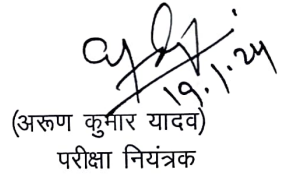 19.1.24
(अरूण कुमार यादव)
परीक्षा नियंत्रक